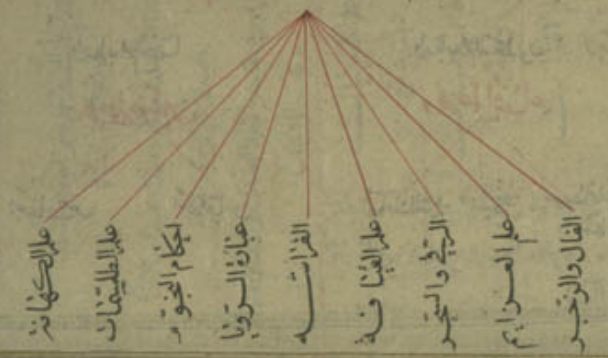 الفال والزجر
علم العزايم
الرقي والسحر
علم القيافة
الفراسه
عبارة الرويا
احكام النجوم
علم الطلسمات
علم الكهانة